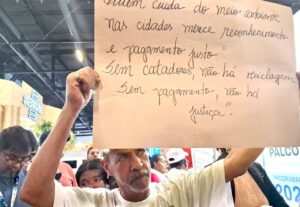 Quem cuida do meio ambiente
nas cidades merece reconhecimento
e pagamento justo"
Sem catadores, não há reciclagem
Sem pagamento, não há
justiça".
PALCO
PROGRAMAÇÃO
202